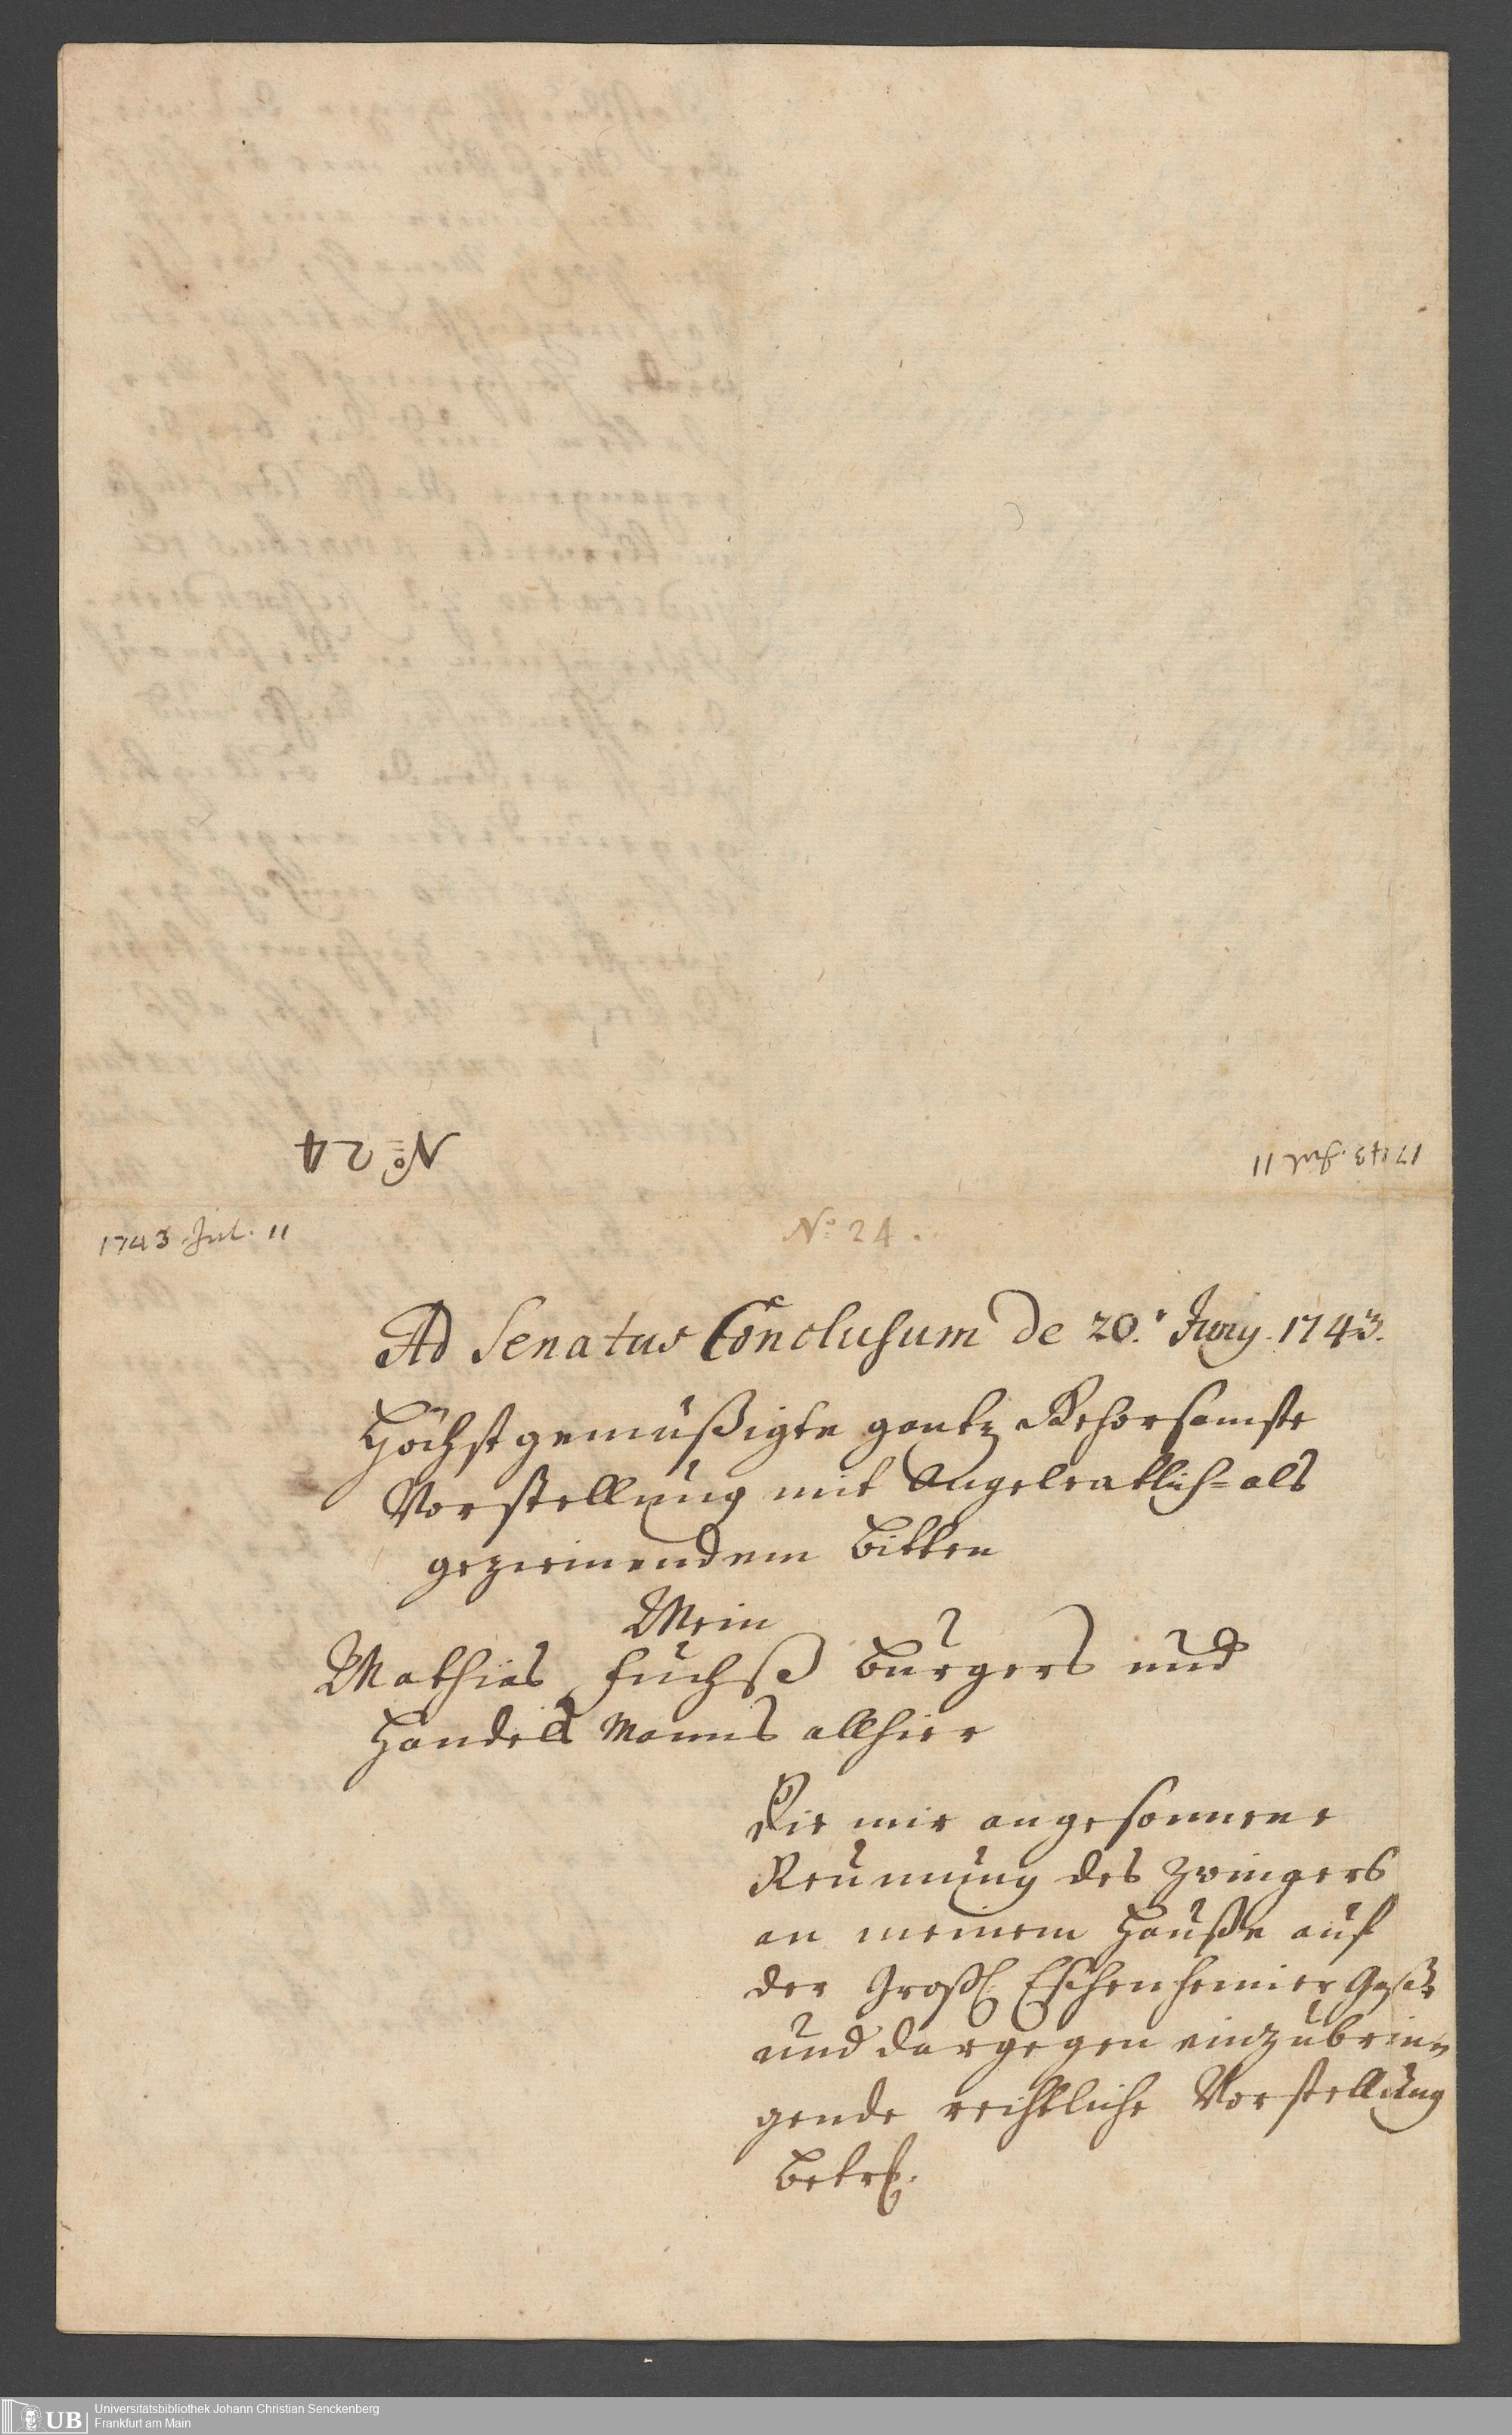 No 24
1743. Jul 11
1743 Jul. 11
No. 24.
Ad Senatus Conclusum de 20. Juny. 1743.
Höchst gemüßigte gantz Gehorsamste
Vorstellung mit Angelegtlich- als
geziemendem Bitten
Mein
Mathias Fuchß Burgers und
Handels Manns allhier
Die mir angesonnene
Reumung des Zwingers
an meinem Hauße auf
der Groß Eschenheimer Gaß
und dargegen einzubrin-
gende rechtliche Vorstellung
betr.
Universitätsbibliothek Johann Christian Senckenberg
Frankfurt am Main
UB